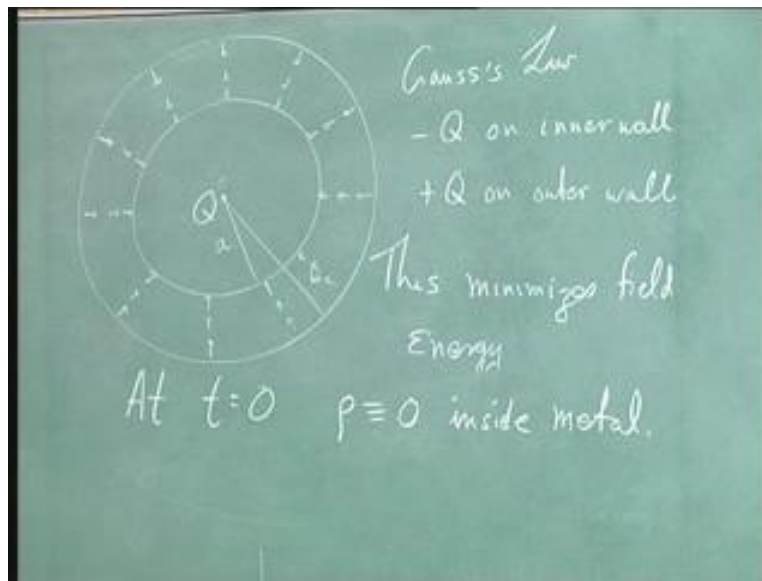 Gauss's Law
- Q on inner wall
+ Q on outer wall
Q
a
b
This minimizes field
Energy
At t=0 ρ≡0 inside metal.